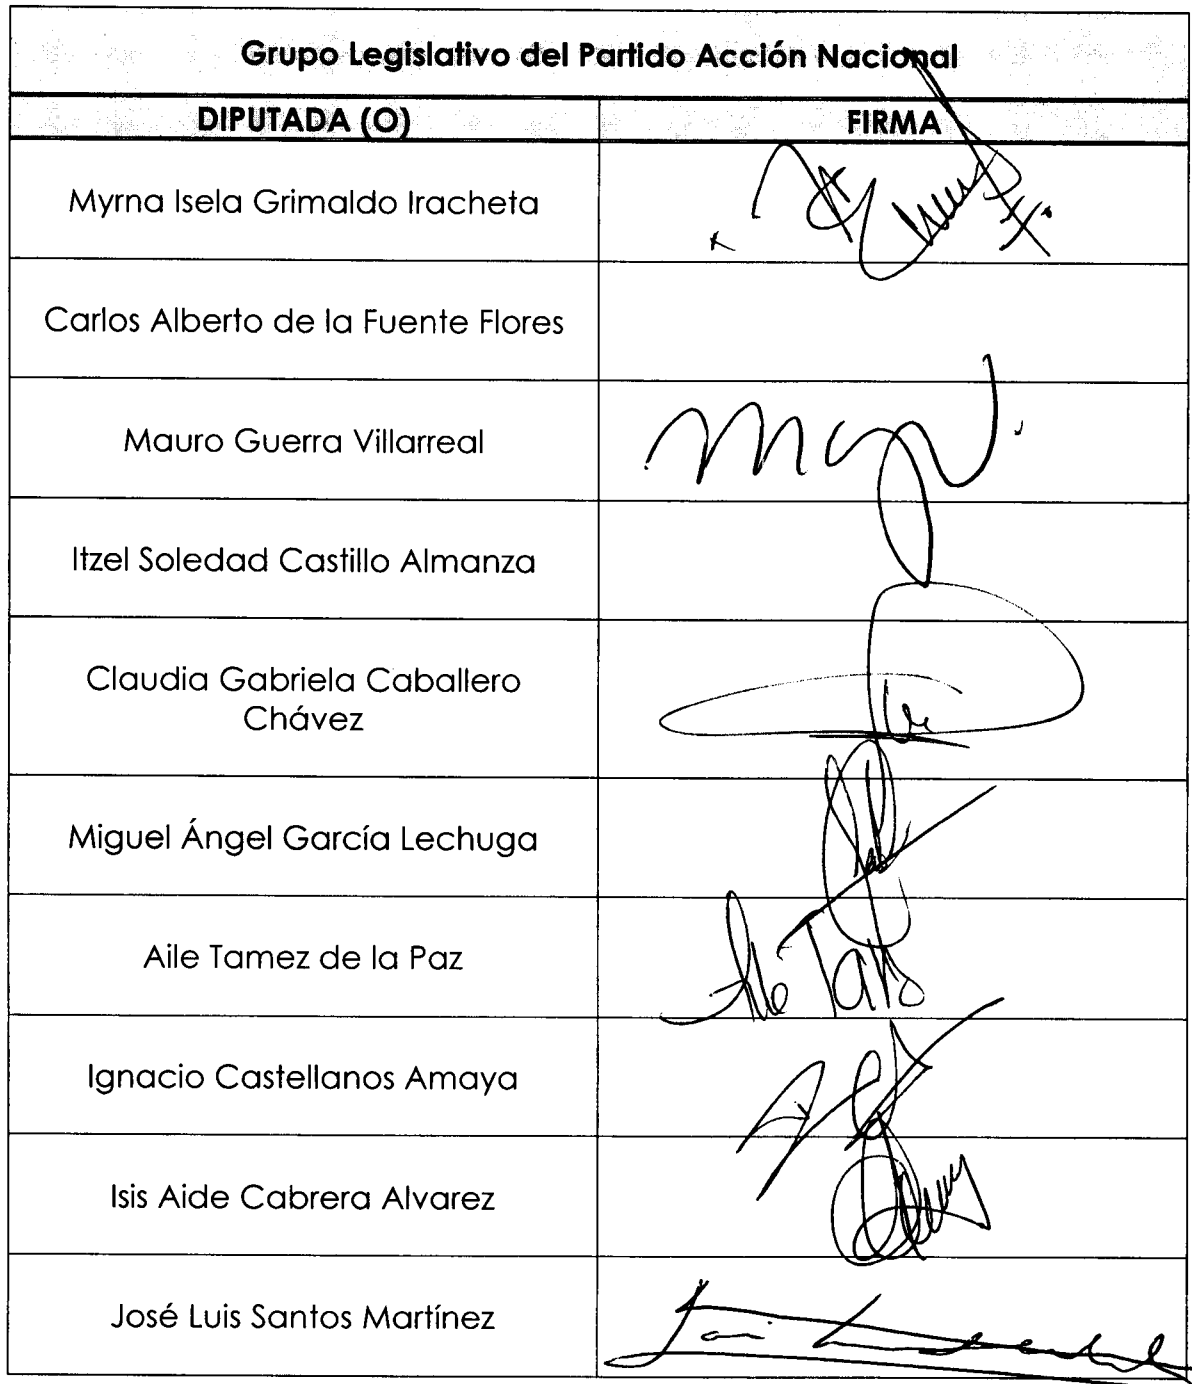 Grupo Legislativo del Partido Acción Nacional
DIPUTADA (O) FIRMA
Myrna Isela Grimaldo Iracheta
Carlos Alberto de la Fuente Flores
Mauro Guerra Villarreal
Itzel Soledad Castillo Almanza
Claudia Gabriela Caballero
Chávez
Miguel Ángel García Lechuga
Aile Tamez de la Paz
Ignacio Castellanos Amaya
Isis Aide Cabrera Alvarez
José Luis Santos Martínez